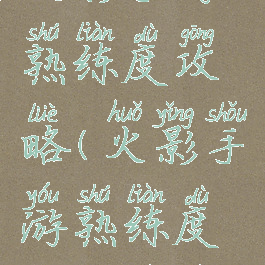 shú liàn dù gōng
熟练度攻
lüè huǒ yǐng shǒu
略(火影手
yóu shú liàn dù
游熟练度